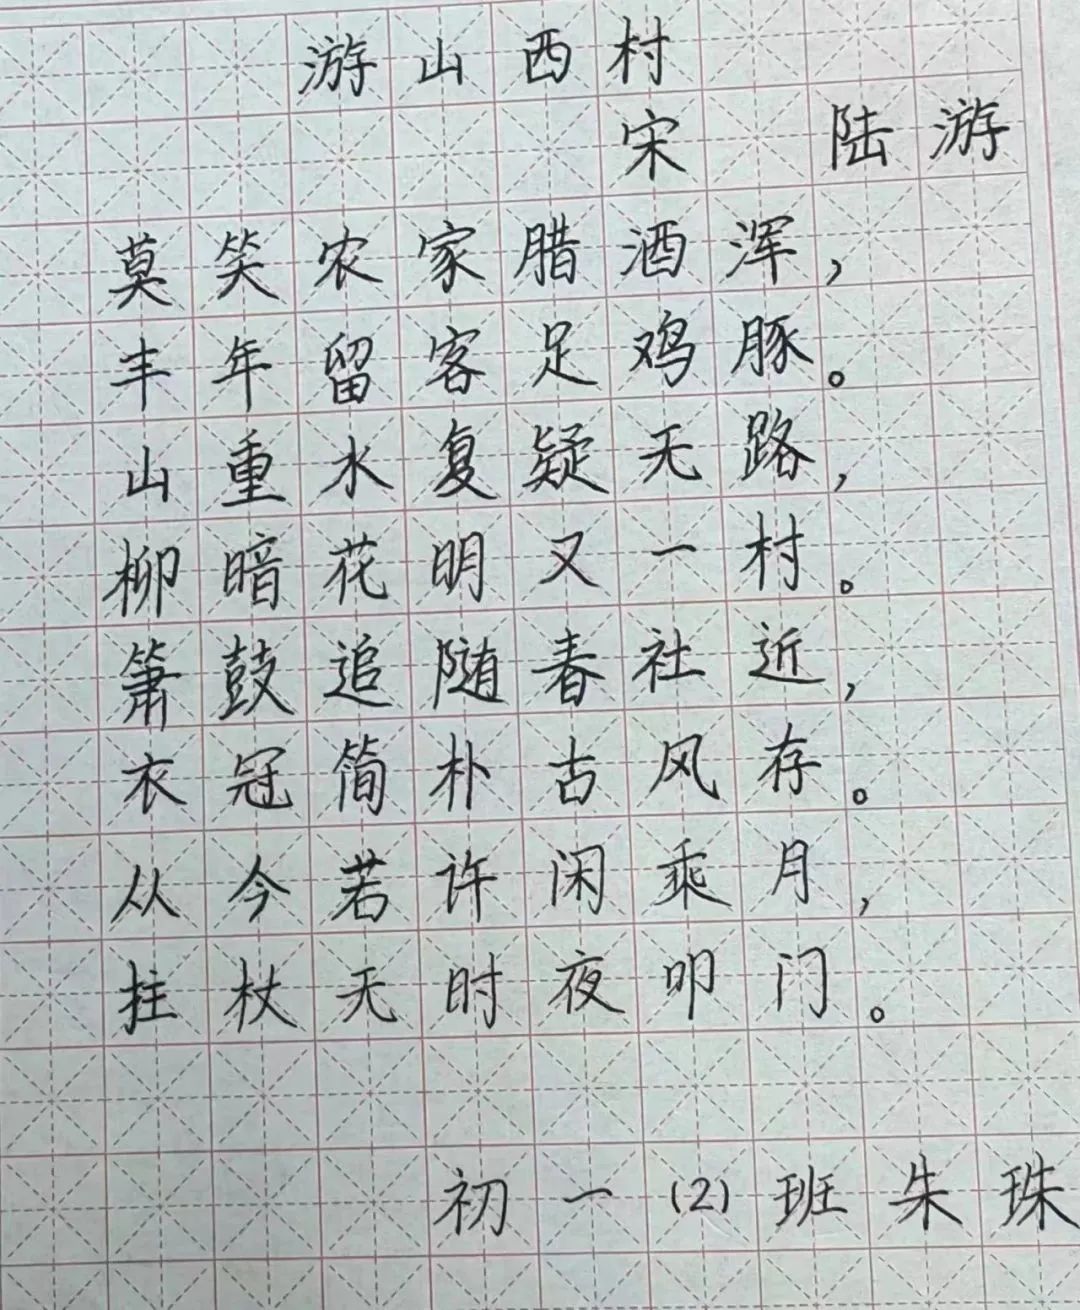 游山西村
宋 陆游
莫笑农家腊酒浑，
丰年留客足鸡豚。
山重水复疑无路，
柳暗花明又一村。
箫鼓追随春社近，
衣冠简朴古风存。
从今若许闲乘月，
拄杖无时夜叩门。
初一(2)班朱珠